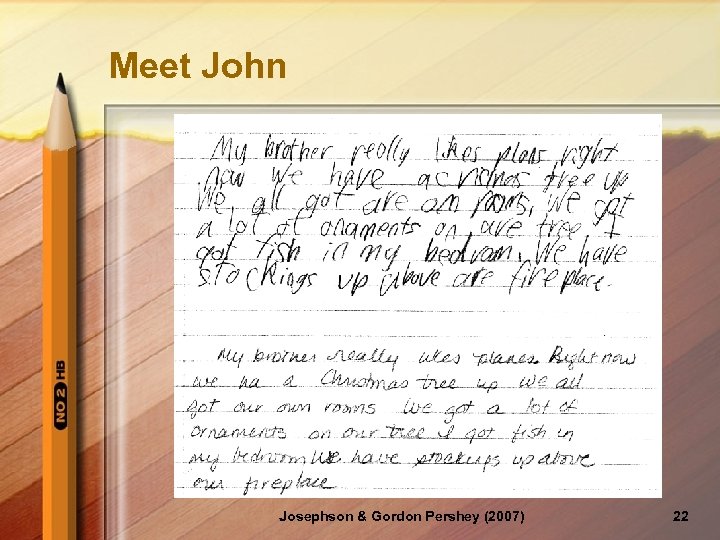 Meet John
My brother really likes plans, right
now we have a crismas tree up
We, all got are own rooms, we got
a lot of ornaments on, are tree I
got fish in my, bedroom, We have
stockings up above are fireplace.
My brother really likes planes. Right now
we ha a Christmas tree up We all
got our own rooms We got a lot of
ornaments on our tree I got fish in
my bedroom We have up above
our fireplace
NO 2 HB
Josephson & Gordon Pershey (2007)
22